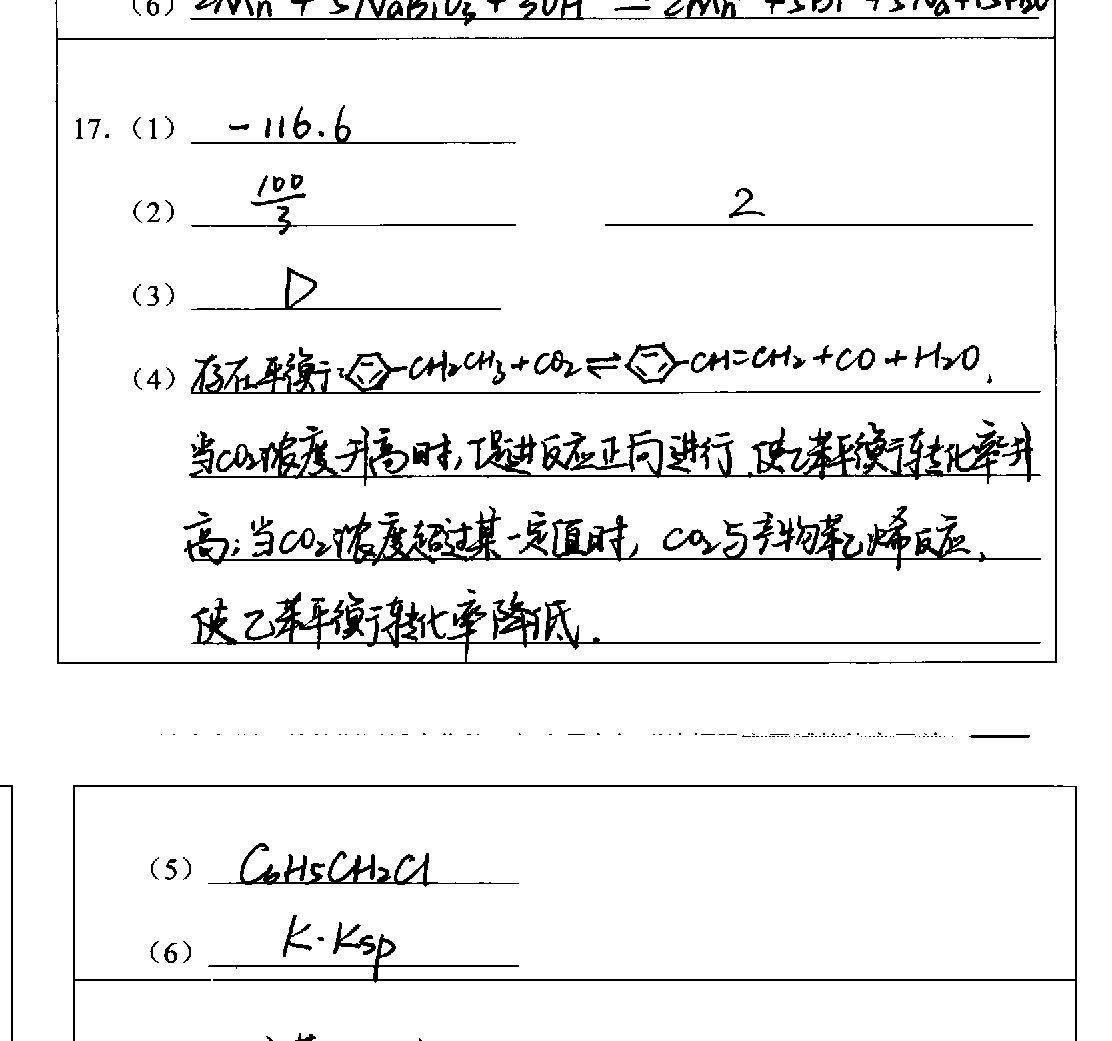 (6) 2Mn + 5NaBiO₃ + 3OH = 2Mn + 5Bi + 5Na +
17.(1) -116.6
(2) 100/3 2
(3) D
(4) 存在平衡:⌬-CH₂CH₃+CO₂⇌⌬-CH=CH₂+CO+H₂O,
当CO₂浓度升高时,促进反应正向进行,使乙苯平衡转化率升
高;当CO₂浓度超过某一定值时,CO₂与产物苯乙烯反应,
使乙苯平衡转化率降低.
(5) C₆H₅CH₂Cl
(6) K·Ksp